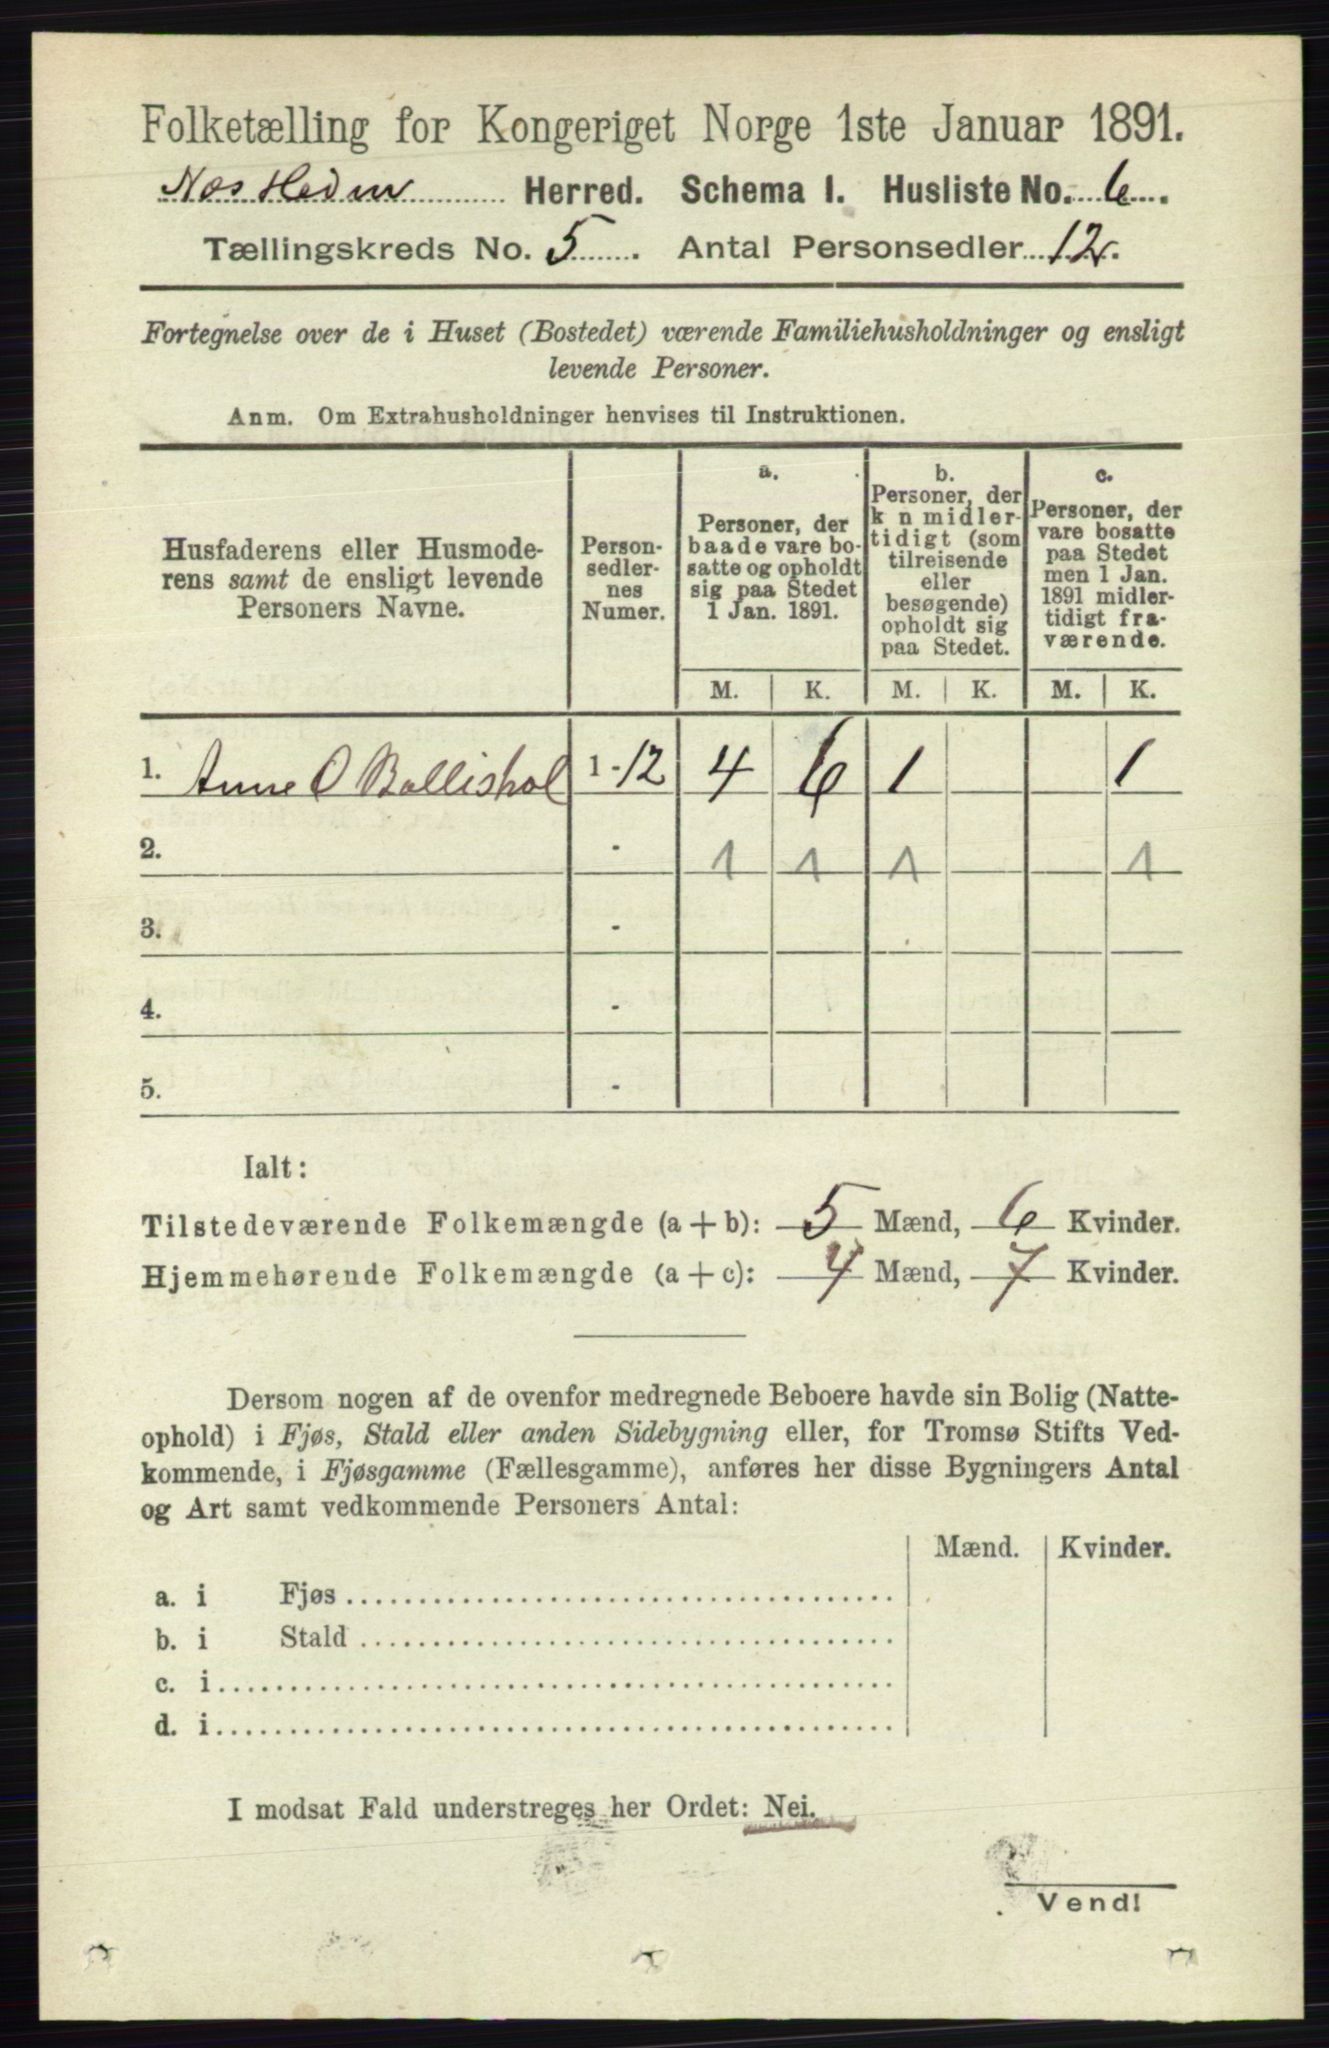 Folketælling for Kongeriget Norge 1ste Januar 1891.
Nes Hedm Herred. Schema I. Husliste No. 6.
Tællingskreds No. 5. Antal Personsedler 12.
Fortegnelse over de i Huset (Bostedet) værende Familiehusholdninger og ensligt
levende Personer.
Anm. Om Extrahusholdninger henvises til Instruktionen.
Husfaderens eller Husmode-
rens samt de ensligt levende
Personers Navne.
Person-
sedler-
nes
Numer.
a.
Personer, der
baade vare bo-
satte og opholdt
sig paa Stedet
1 Jan. 1891.
b.
Personer, der
k n midler-
tidigt (som
tilreisende
eller
besøgende)
opholdt sig
paa Stedet.
c.
Personer, der
vare bosatte
paa Stedet
men 1 Jan.
1891 midler-
tidigt fra-
værende.
M. K. M. K. M. K.
1. Anne O Ballishol 1-12 4 6 1 1
2. - 1 1 1 1
3. -
4. -
5. -
Ialt:
Tilstedeværende Folkemængde (a + b): 5 Mænd, 6 Kvinder.
Hjemmehørende Folkemængde (a + c): 4 Mænd, 7 Kvinder.
Dersom nogen af de ovenfor medregnede Beboere havde sin Bolig (Natte-
ophold) i Fjøs, Stald eller anden Sidebygning eller, for Tromsø Stifts Ved-
kommende, i Fjøsgamme (Fællesgamme), anføres her disse Bygningers Antal
og Art samt vedkommende Personers Antal:
Mænd. Kvinder.
a. i Fjøs
b. i Stald
c. i
d. i
I modsat Fald understreges her Ordet: Nei.
Vend!